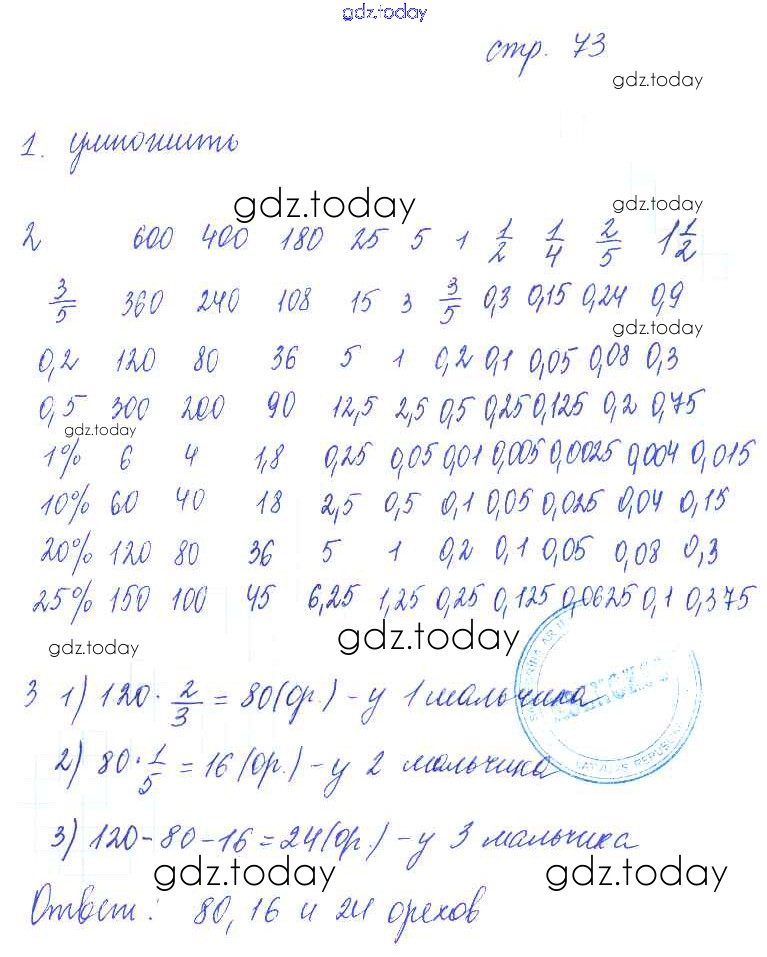 gdz.today
стр. 73
gdz.today
1. умножить
gdz.today gdz.today
2 600 400 180 25 5 1 1/2 1/4 2/5 1 1/2
3/5 360 240 108 15 3 3/5 0,3 0,15 0,24 0,9
gdz.today
0,2 120 80 36 5 1 0,2 0,1 0,05 0,08 0,3
0,5 300 200 90 12,5 2,5 0,5 0,25 0,125 0,2 0,75
gdz.today
1% 6 4 1,8 0,25 0,05 0,01 0,005 0,0025 0,004 0,015
10% 60 40 18 2,5 0,5 0,1 0,05 0,025 0,04 0,15
20% 120 80 36 5 1 0,2 0,1 0,05 0,08 0,3
25% 150 100 45 6,25 1,25 0,25 0,125 0,0625 0,1 0,375
gdz.today gdz.today
3 1) 120 · 2/3 = 80 (ор.) – у 1 мальчика
2) 80 · 1/5 = 16 (ор.) – у 2 мальчика
3) 120 – 80 – 16 = 24 (ор.) – у 3 мальчика
gdz.today gdz.today
Ответ: 80, 16 и 24 орехов